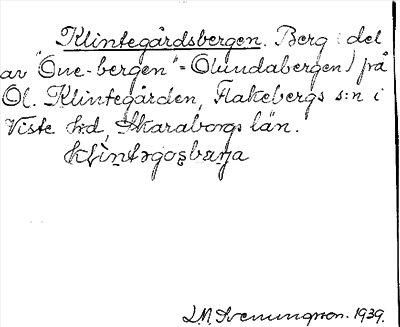 Klintegårdsbergen. Berg (del
av "One-bergen" = Olundabergen) på
Ol. Klintegården, Flakebergs s:n i
Viste hd, Skaraborgs län.
klintəgosbærja
J.M. Svenungsson. 1939.